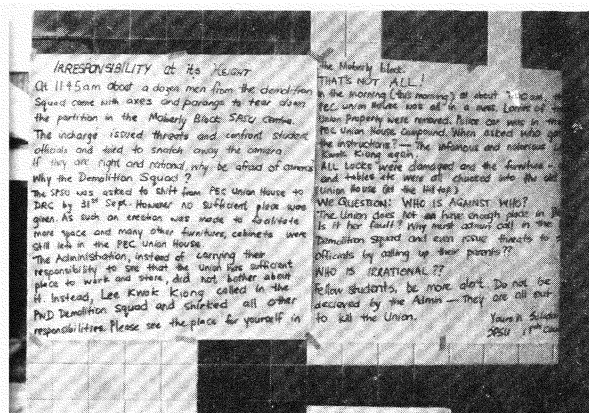 IRRESPONSIBILITY at its HEIGHT
At 1145am about a dozen men from the demolition
Squad came with axes and parangs to tear down
the partition in the Moberly Block SPSU Centre.
The incharge issued threats and confront student
officials and tried to snatch away the camera
If they are right and rational why be afraid of camera
Why the Demolition Squad?
The SPSU was asked to shift from PEC Union House to
DRC by 31st Sept. However no sufficient place was
given. As such an erection was made to facilitate
more space and many other furniture, cabinets were
still left in the PEC Union House.
The Administration, instead of carrying their
responsibility to see that the Union has sufficient
place to work and store, did not bother about
it. Instead, Lee Kwok Kiong called in the
PWD Demolition Squad and shirked all other
responsibilities. Please see the place for yourself in
the Moberly block.
THAT'S NOT ALL!
In the morning (this morning) at about
PEC union House was all in a mess. Locks of
Union Property were removed. Police car was in the
PEC Union House Compound. When asked who
the instructions? — The infamous and notorious
Kwok Kiong again.
All Locks were damaged and the furniture
and tables etc were all chucked into the old
Union House (at the Hilltop)
WE QUESTION: WHO IS AGAINST WHO?
The Union does not have enough place in
Is it her fault? Why must admin call in the
Demolition squad and even issue threats to
officials by calling up their parents??
WHO IS IRRATIONAL??
Fellow students, be more alert. Do not be
deceived by the Admin — They are all out
to kill the Union.
Yours in
SPSU